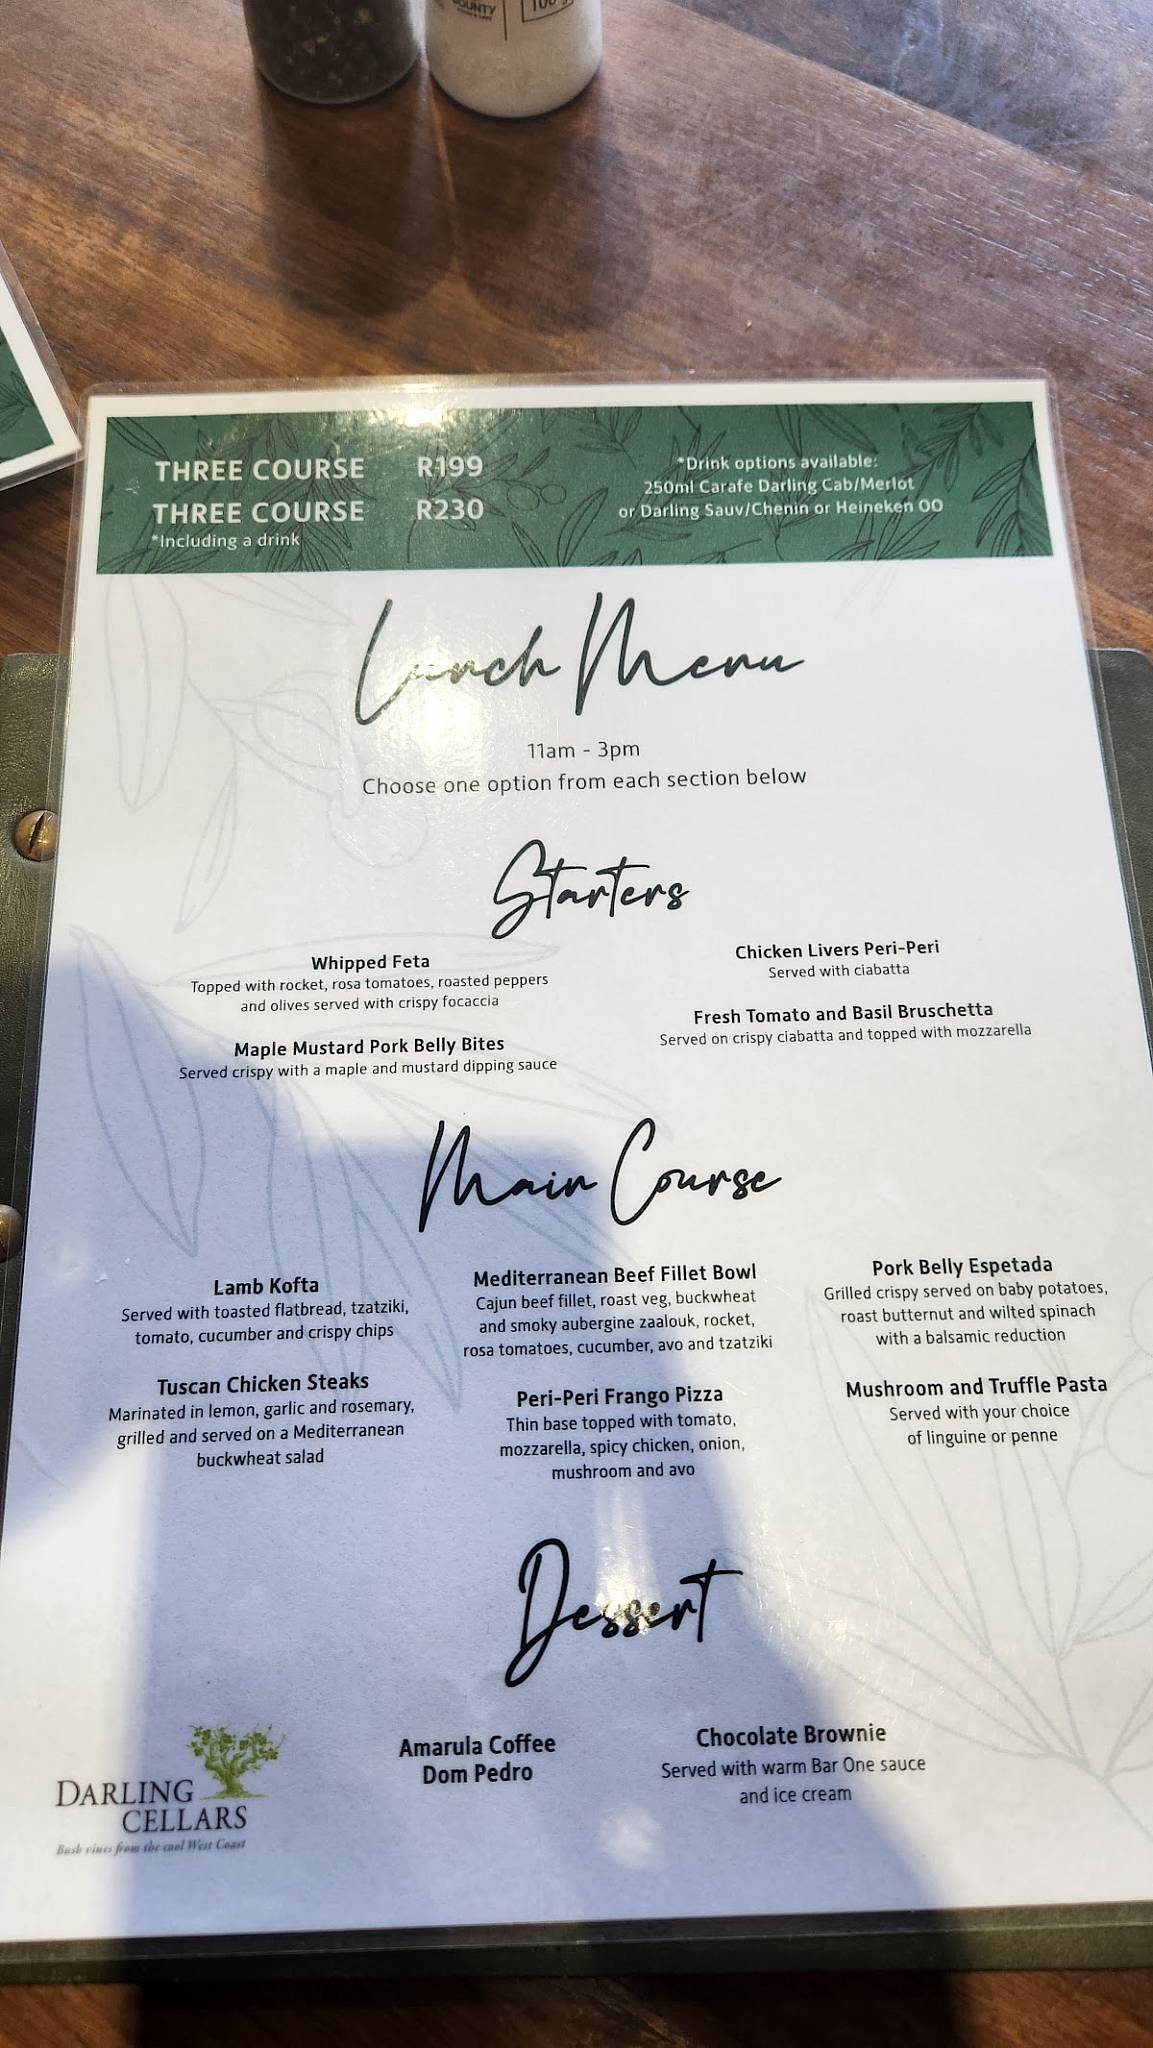 OUNTY
100
THREE COURSE R199
THREE COURSE R230
*Including a drink
*Drink options available:
250ml Carafe Darling Cab/Merlot
or Darling Sauv/Chenin or Heineken OO
Lunch Menu
11am - 3pm
Choose one option from each section below
Starters
Whipped Feta
Topped with rocket, rosa tomatoes, roasted peppers
and olives served with crispy focaccia
Maple Mustard Pork Belly Bites
Served crispy with a maple and mustard dipping sauce
Chicken Livers Peri-Peri
Served with ciabatta
Fresh Tomato and Basil Bruschetta
Served on crispy ciabatta and topped with mozzarella
Main Course
Lamb Kofta
Served with toasted flatbread, tzatziki,
tomato, cucumber and crispy chips
Tuscan Chicken Steaks
Marinated in lemon, garlic and rosemary,
grilled and served on a Mediterranean
buckwheat salad
Mediterranean Beef Fillet Bowl
Cajun beef fillet, roast veg, buckwheat
and smoky aubergine zaalouk, rocket,
rosa tomatoes, cucumber, avo and tzatziki
Peri-Peri Frango Pizza
Thin base topped with tomato,
mozzarella, spicy chicken, onion,
mushroom and avo
Pork Belly Espetada
Grilled crispy served on baby potatoes,
roast butternut and wilted spinach
with a balsamic reduction
Mushroom and Truffle Pasta
Served with your choice
of linguine or penne
Dessert
Amarula Coffee
Dom Pedro
Chocolate Brownie
Served with warm Bar One sauce
and ice cream
DARLING
CELLARS
Bush vines from the cool West Coast